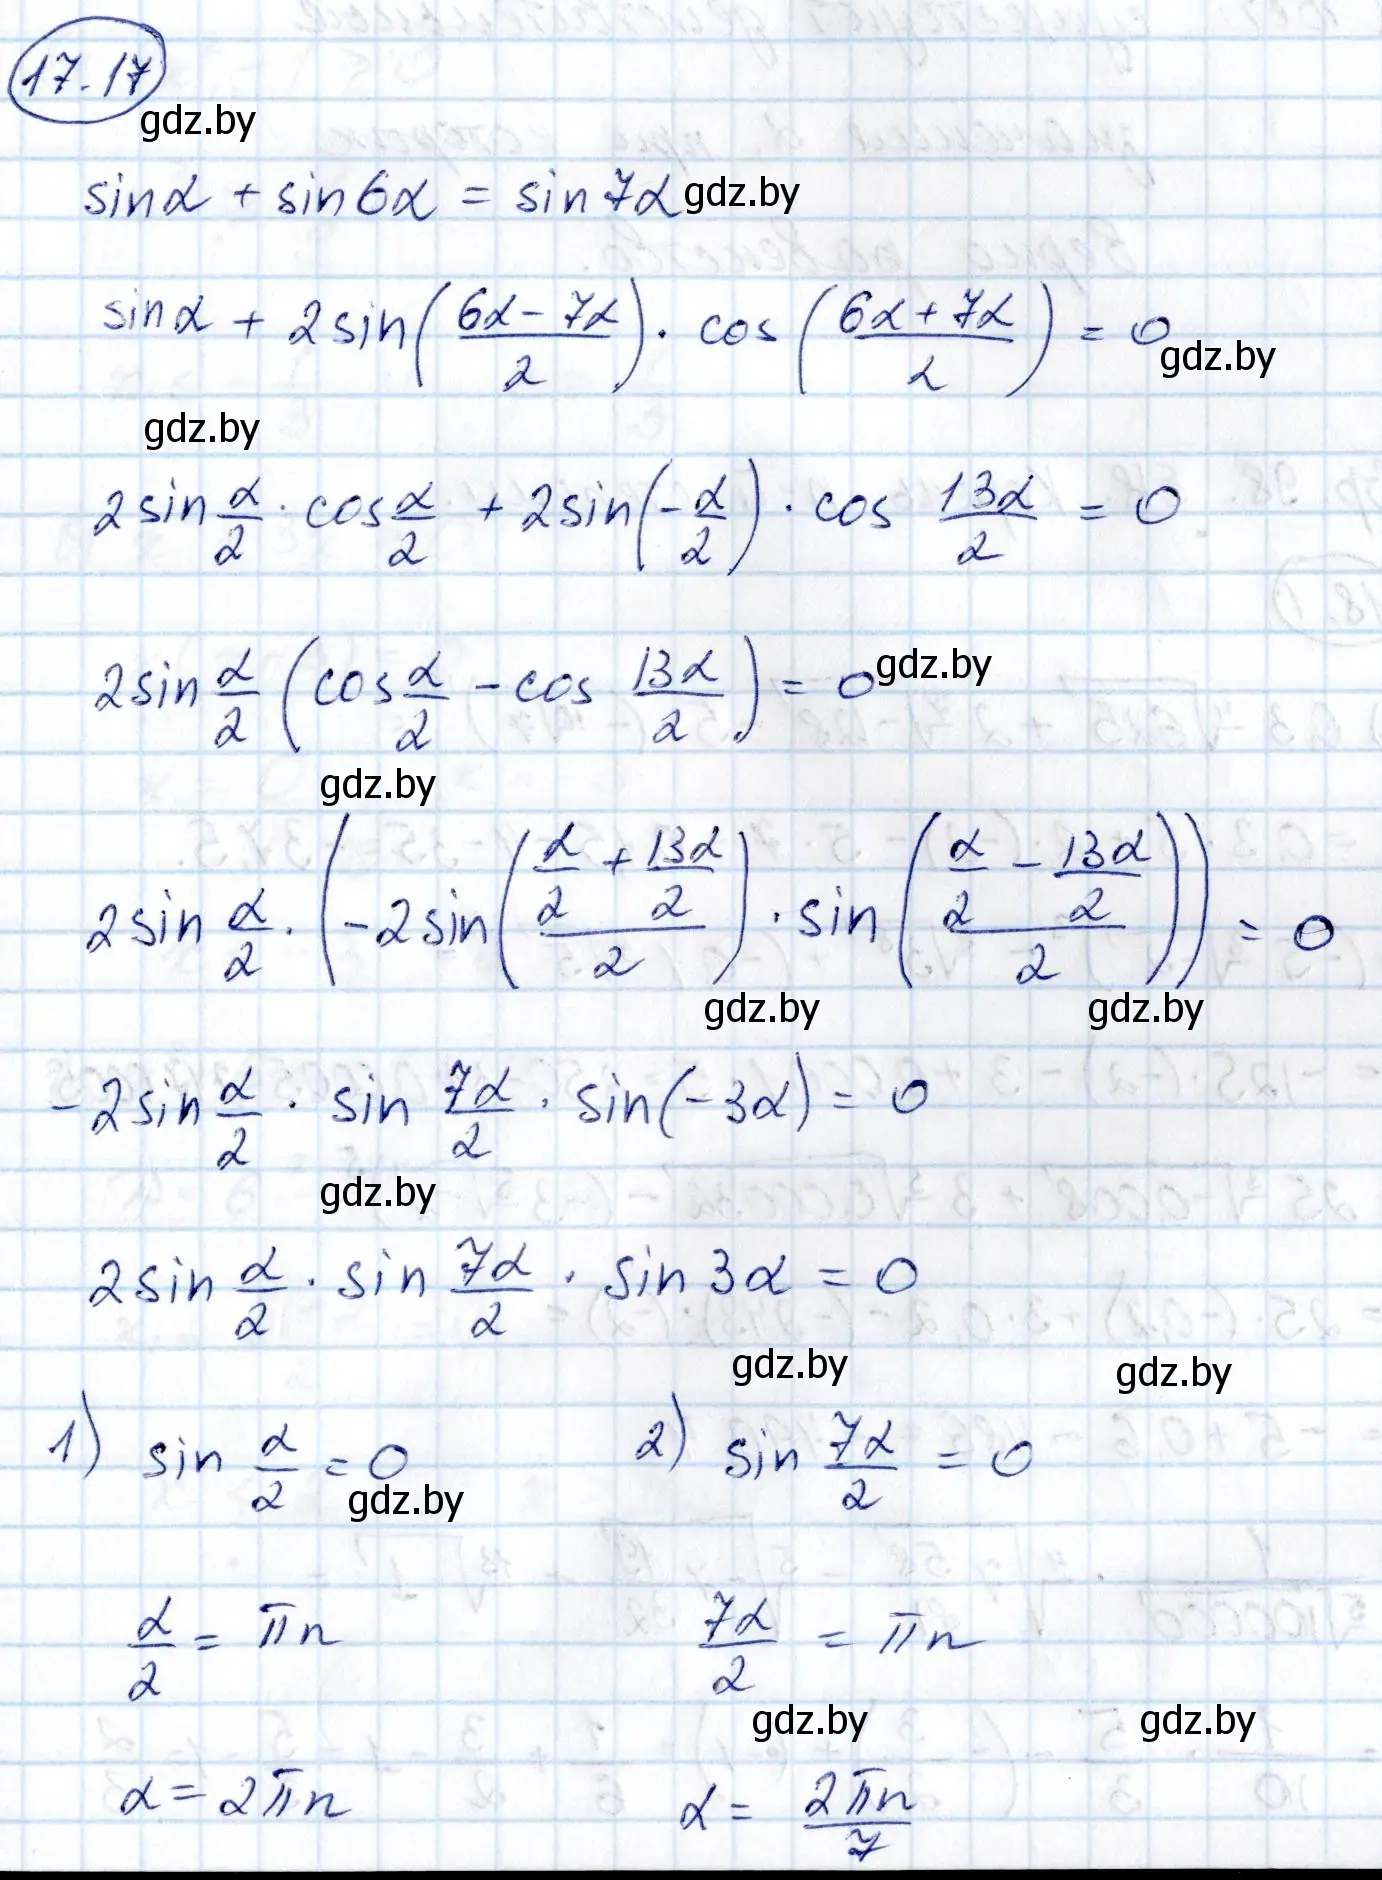 17.17
gdz.by
sinα + sin6α = sin7α gdz.by
sinα + 2sin((6α − 7α)/2) · cos((6α + 7α)/2) = 0
gdz.by
gdz.by
2sin α/2 · cos α/2 + 2sin(−α/2) · cos 13α/2 = 0
2sin α/2 (cos α/2 − cos 13α/2) = 0 gdz.by
gdz.by
2sin α/2 · (−2sin((α/2 + 13α/2)/2) · sin((α/2 − 13α/2)/2)) = 0
gdz.by gdz.by
−2sin α/2 · sin 7α/2 · sin(−3α) = 0
gdz.by
2sin α/2 · sin 7α/2 · sin3α = 0
gdz.by gdz.by
1) sin α/2 = 0 2) sin 7α/2 = 0
gdz.by
α/2 = πn 7α/2 = πn
gdz.by gdz.by
α = 2πn α = 2πn/7